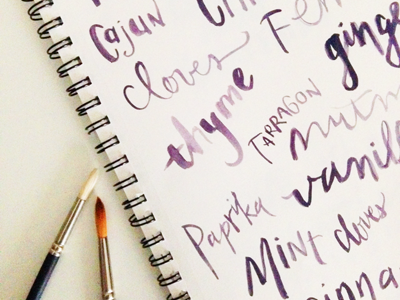 Cajun
cloves Fenn
ginge
thyme
TARRAGON
nutm
vanill
Paprika
Mint cloves
innam